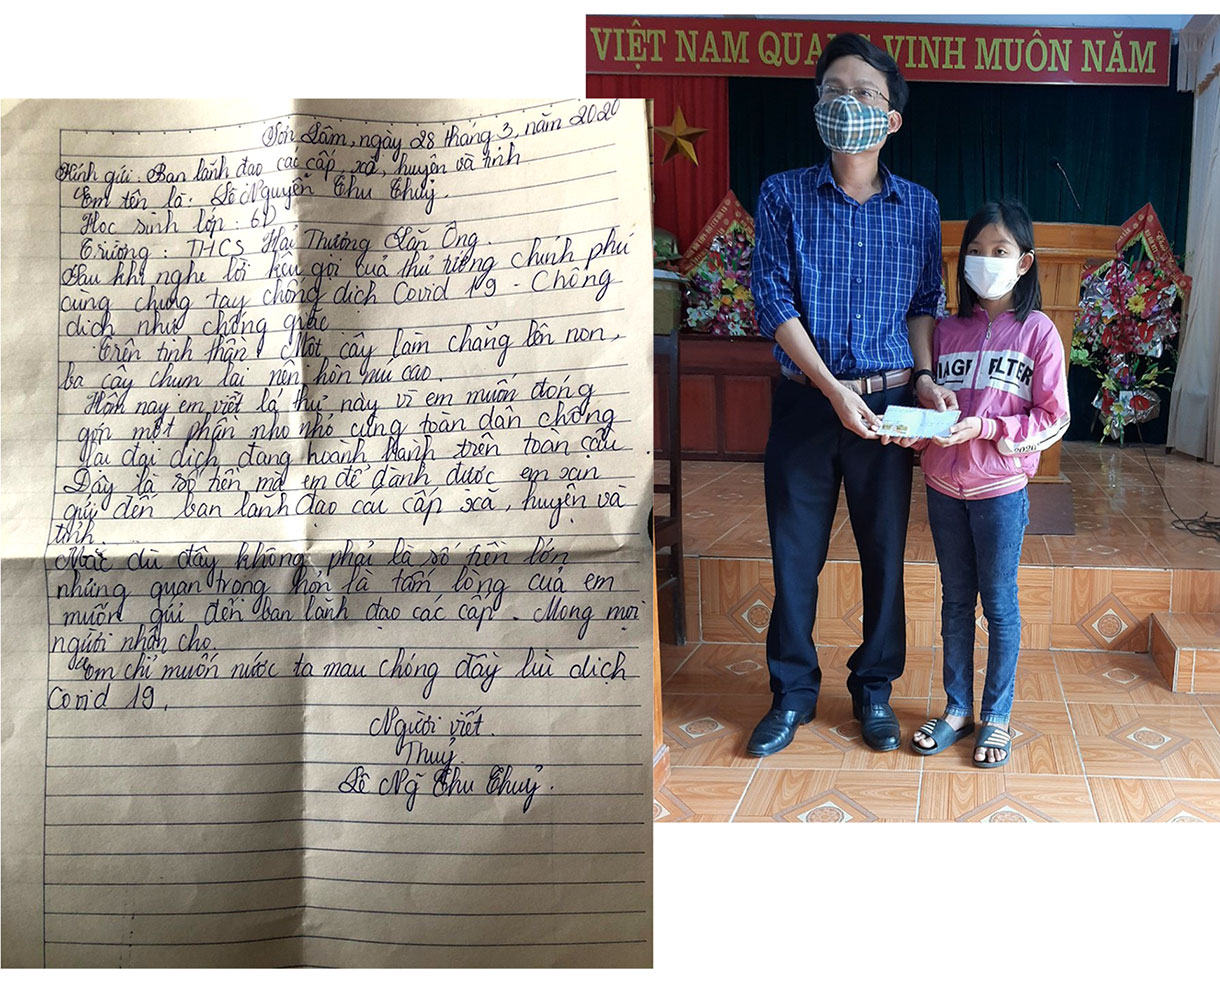 Sơn Lâm, ngày 28 tháng 3, năm 2020
Kính gửi: Ban lãnh đạo các cấp, xã, huyện và tỉnh
Em tên là: Lê Nguyễn Thu Thuỷ.
Học sinh lớp: 6D
Trường: THCS Hải Thượng Lãn Ông.
Sau khi nghe lời kêu gọi của thủ tướng chính phủ
cùng chung tay chống dịch Covid 19 - Chống
dịch như chống giặc
Trên tinh thần. Một cây làm chẳng lên non,
ba cây chụm lại nên hòn núi cao.
Hôm nay em viết lá thư này vì em muốn đóng
góp một phần nho nhỏ cùng toàn dân chống
lại đại dịch đang hoành hành trên toàn cầu
Đây là số tiền mà em để dành được em xin
gửi đến ban lãnh đạo các cấp xã, huyện và
tỉnh.
Mặc dù đây không phải là số tiền lớn
nhưng quan trọng hơn là tấm lòng của em
muốn gửi đến ban lãnh đạo các cấp. Mong mọi
người nhận cho.
Em chỉ muốn nước ta mau chóng đẩy lùi dịch
Covid 19.
Người viết.
Thuỷ
Lê Ng̃ Thu Thuỷ.
VIỆT NAM QUANG VINH MUÔN NĂM
FILTER
2020